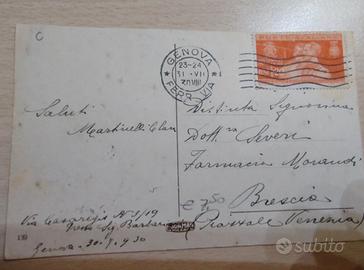 C
GENOVA
23-24
31 · VII
30 VIII
FERROVIA
Saluti
Martinelli Clan
Distinta Signorina
Dott.ssa Severi
Farmacia Morandi
Brescia
(Piazzale Venezia)
€ 7,50
Via Casaregis N. 3/19
presso Sig. Barbar
Genova - 30-7-930
subito